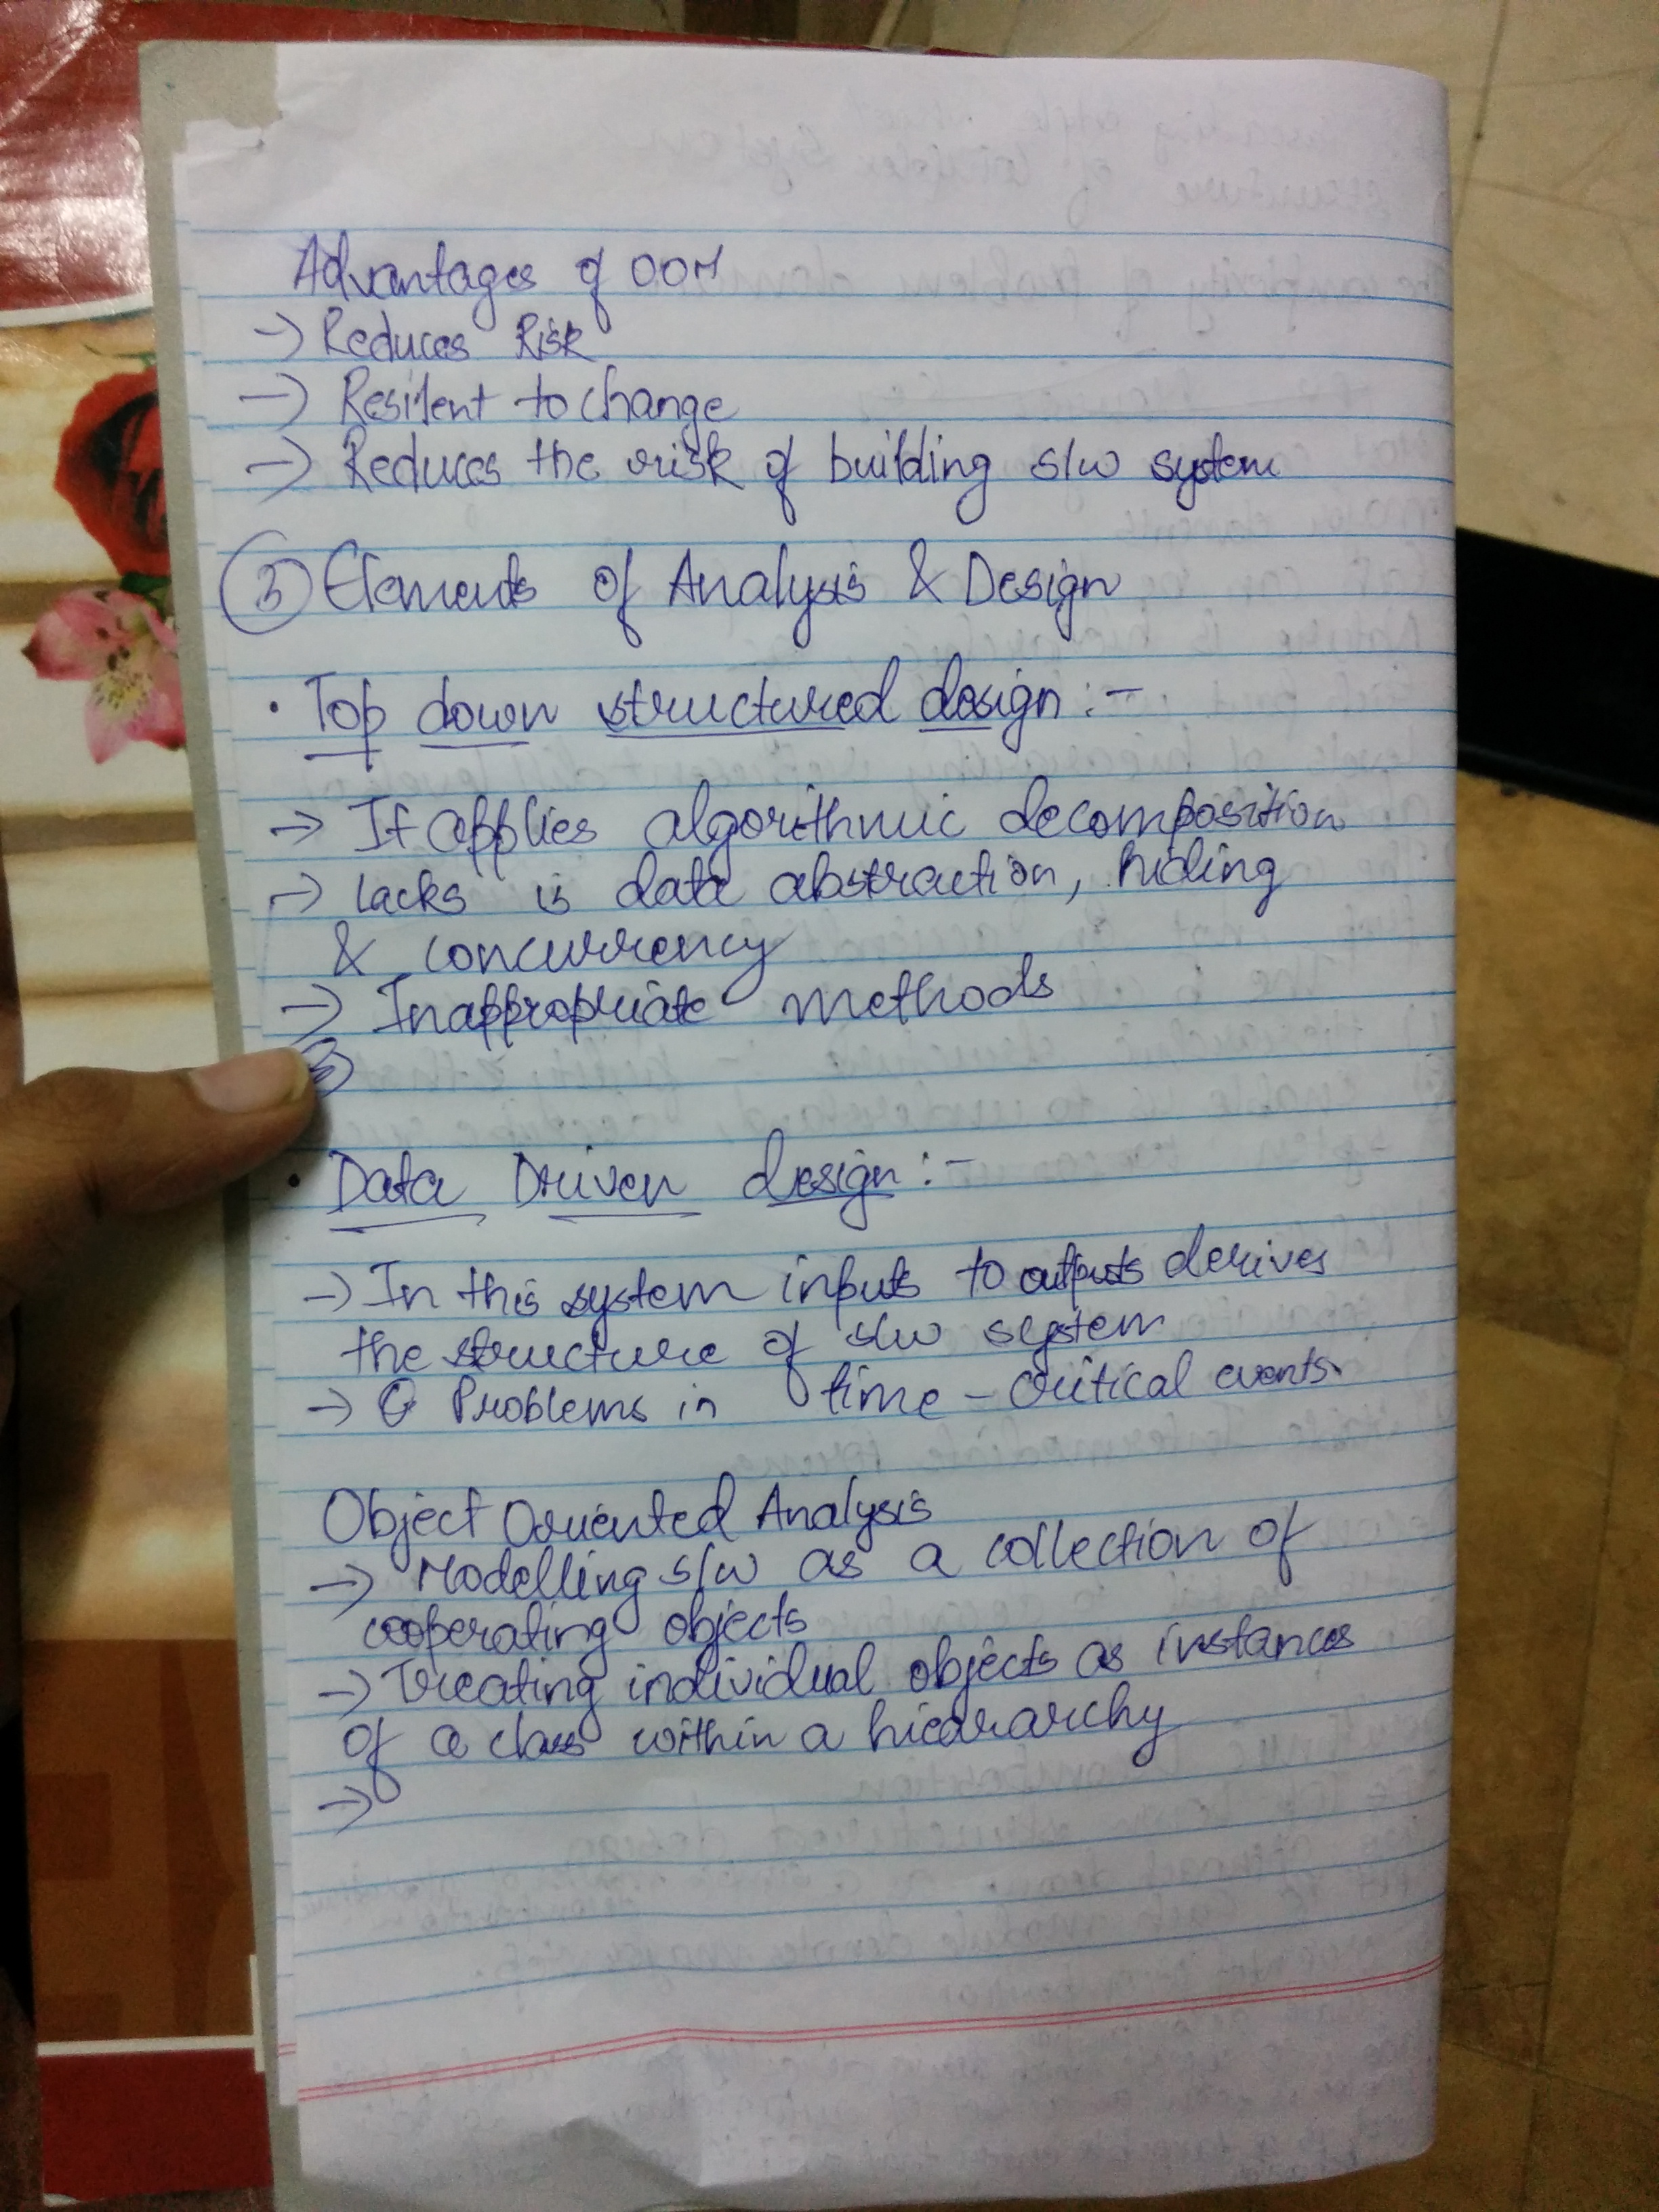 Advantages of OOM
→ Reduces Risk
→ Resilent to change
→ Reduces the risk of building s/w system
③ Elements of Analysis & Design
· Top down structured design :-
→ It applies algorithmic decomposition
→ lacks is data abstraction, hiding
& concurrency
→ Inappropriate methods
· Data Driven design :-
→ In this system inputs to outputs derives
the structure of s/w system
→ Problems in time-critical events.
Object Oriented Analysis
→ Modelling s/w as a collection of
cooperating objects
→ Treating individual objects as instances
of a class within a hieararchy
→